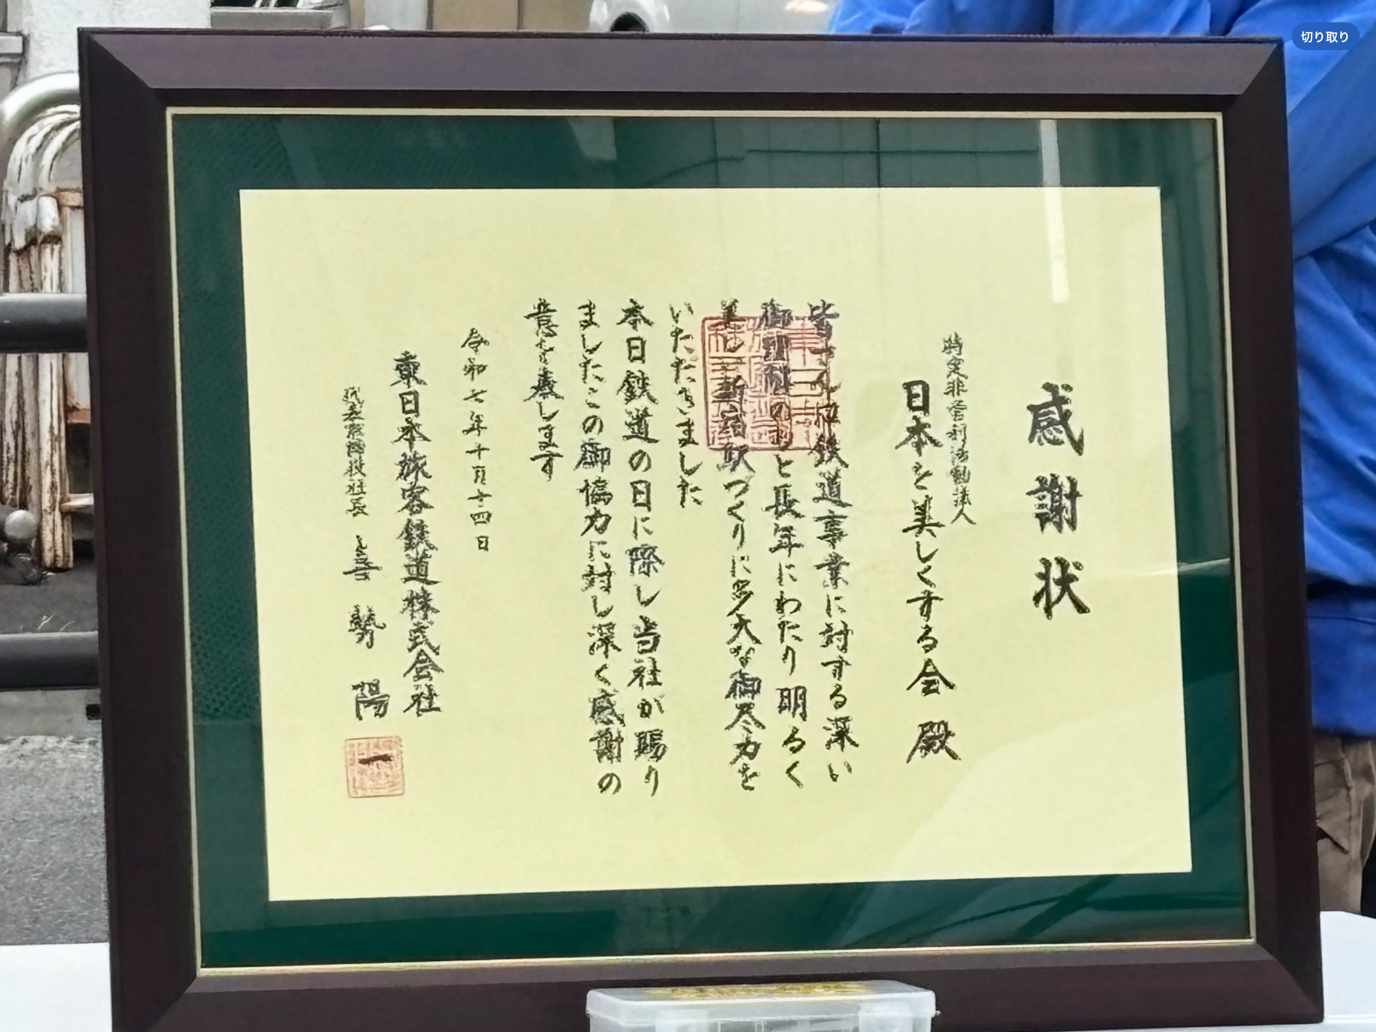 切り取り
感謝状
特定非営利活動法人
日本を美しくする会 殿
皆さんは鉄道事業に対する深い
御理解のもと長年にわたり明るく
美しい新宿駅づくりに多大な御尽力を
いただきました
本日鉄道の日に際し当社が賜り
ましたこの御協力に対し深く感謝の
意を表します
令和七年十月十四日
東日本旅客鉄道株式会社
代表取締役社長 喜㔟陽一